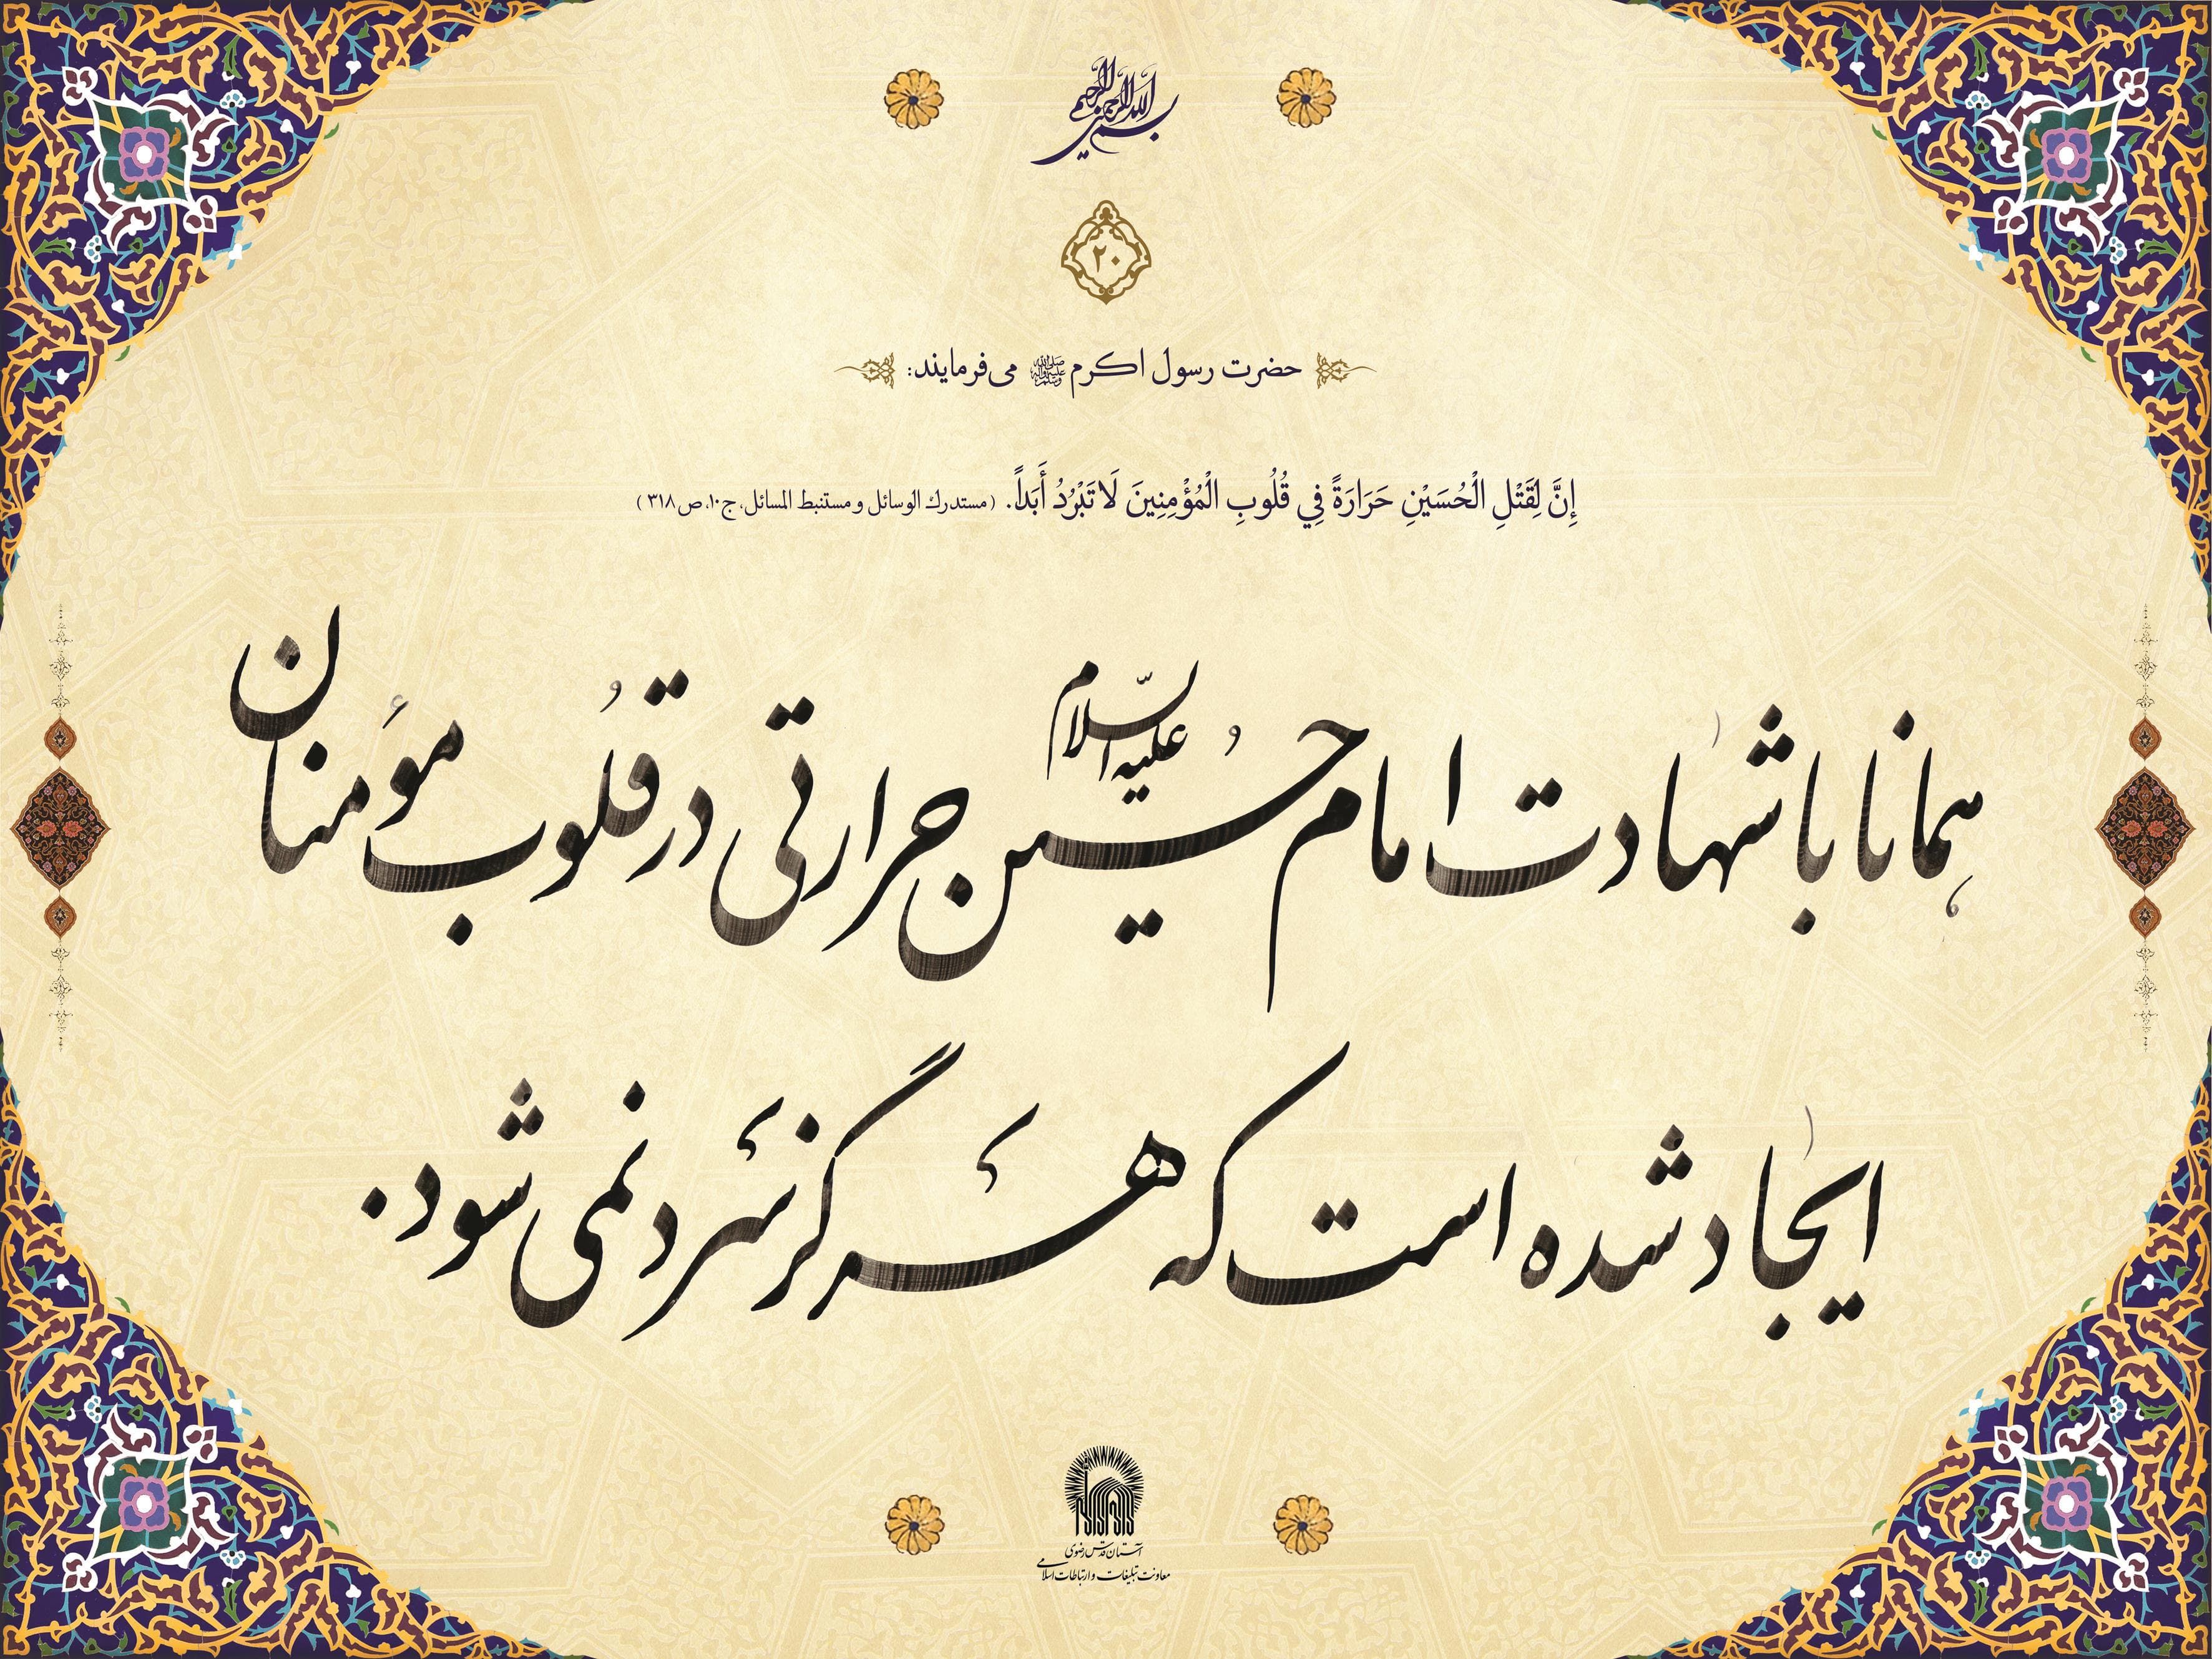 بسم الله الرحمن الرحیم
۲۰
حضرت رسول اکرم صلی الله علیه وآله وسلم می‌فرمایند:
إِنَّ لِقَتْلِ الْحُسَيْنِ حَرَارَةً فِي قُلُوبِ الْمُؤْمِنِينَ لَا تَبْرُدُ أَبَداً. (مستدرك الوسائل و مستنبط المسائل، ج۱۰، ص۳۱۸)
همانا با شهادت امام حُسین علیه السّلام حرارتی در قلُوب مؤمنان
ایجاد شده است که هرگز سرد نمی شود.
آستان قدس رضوی
معاونت تبلیغات و ارتباطات اسلامی